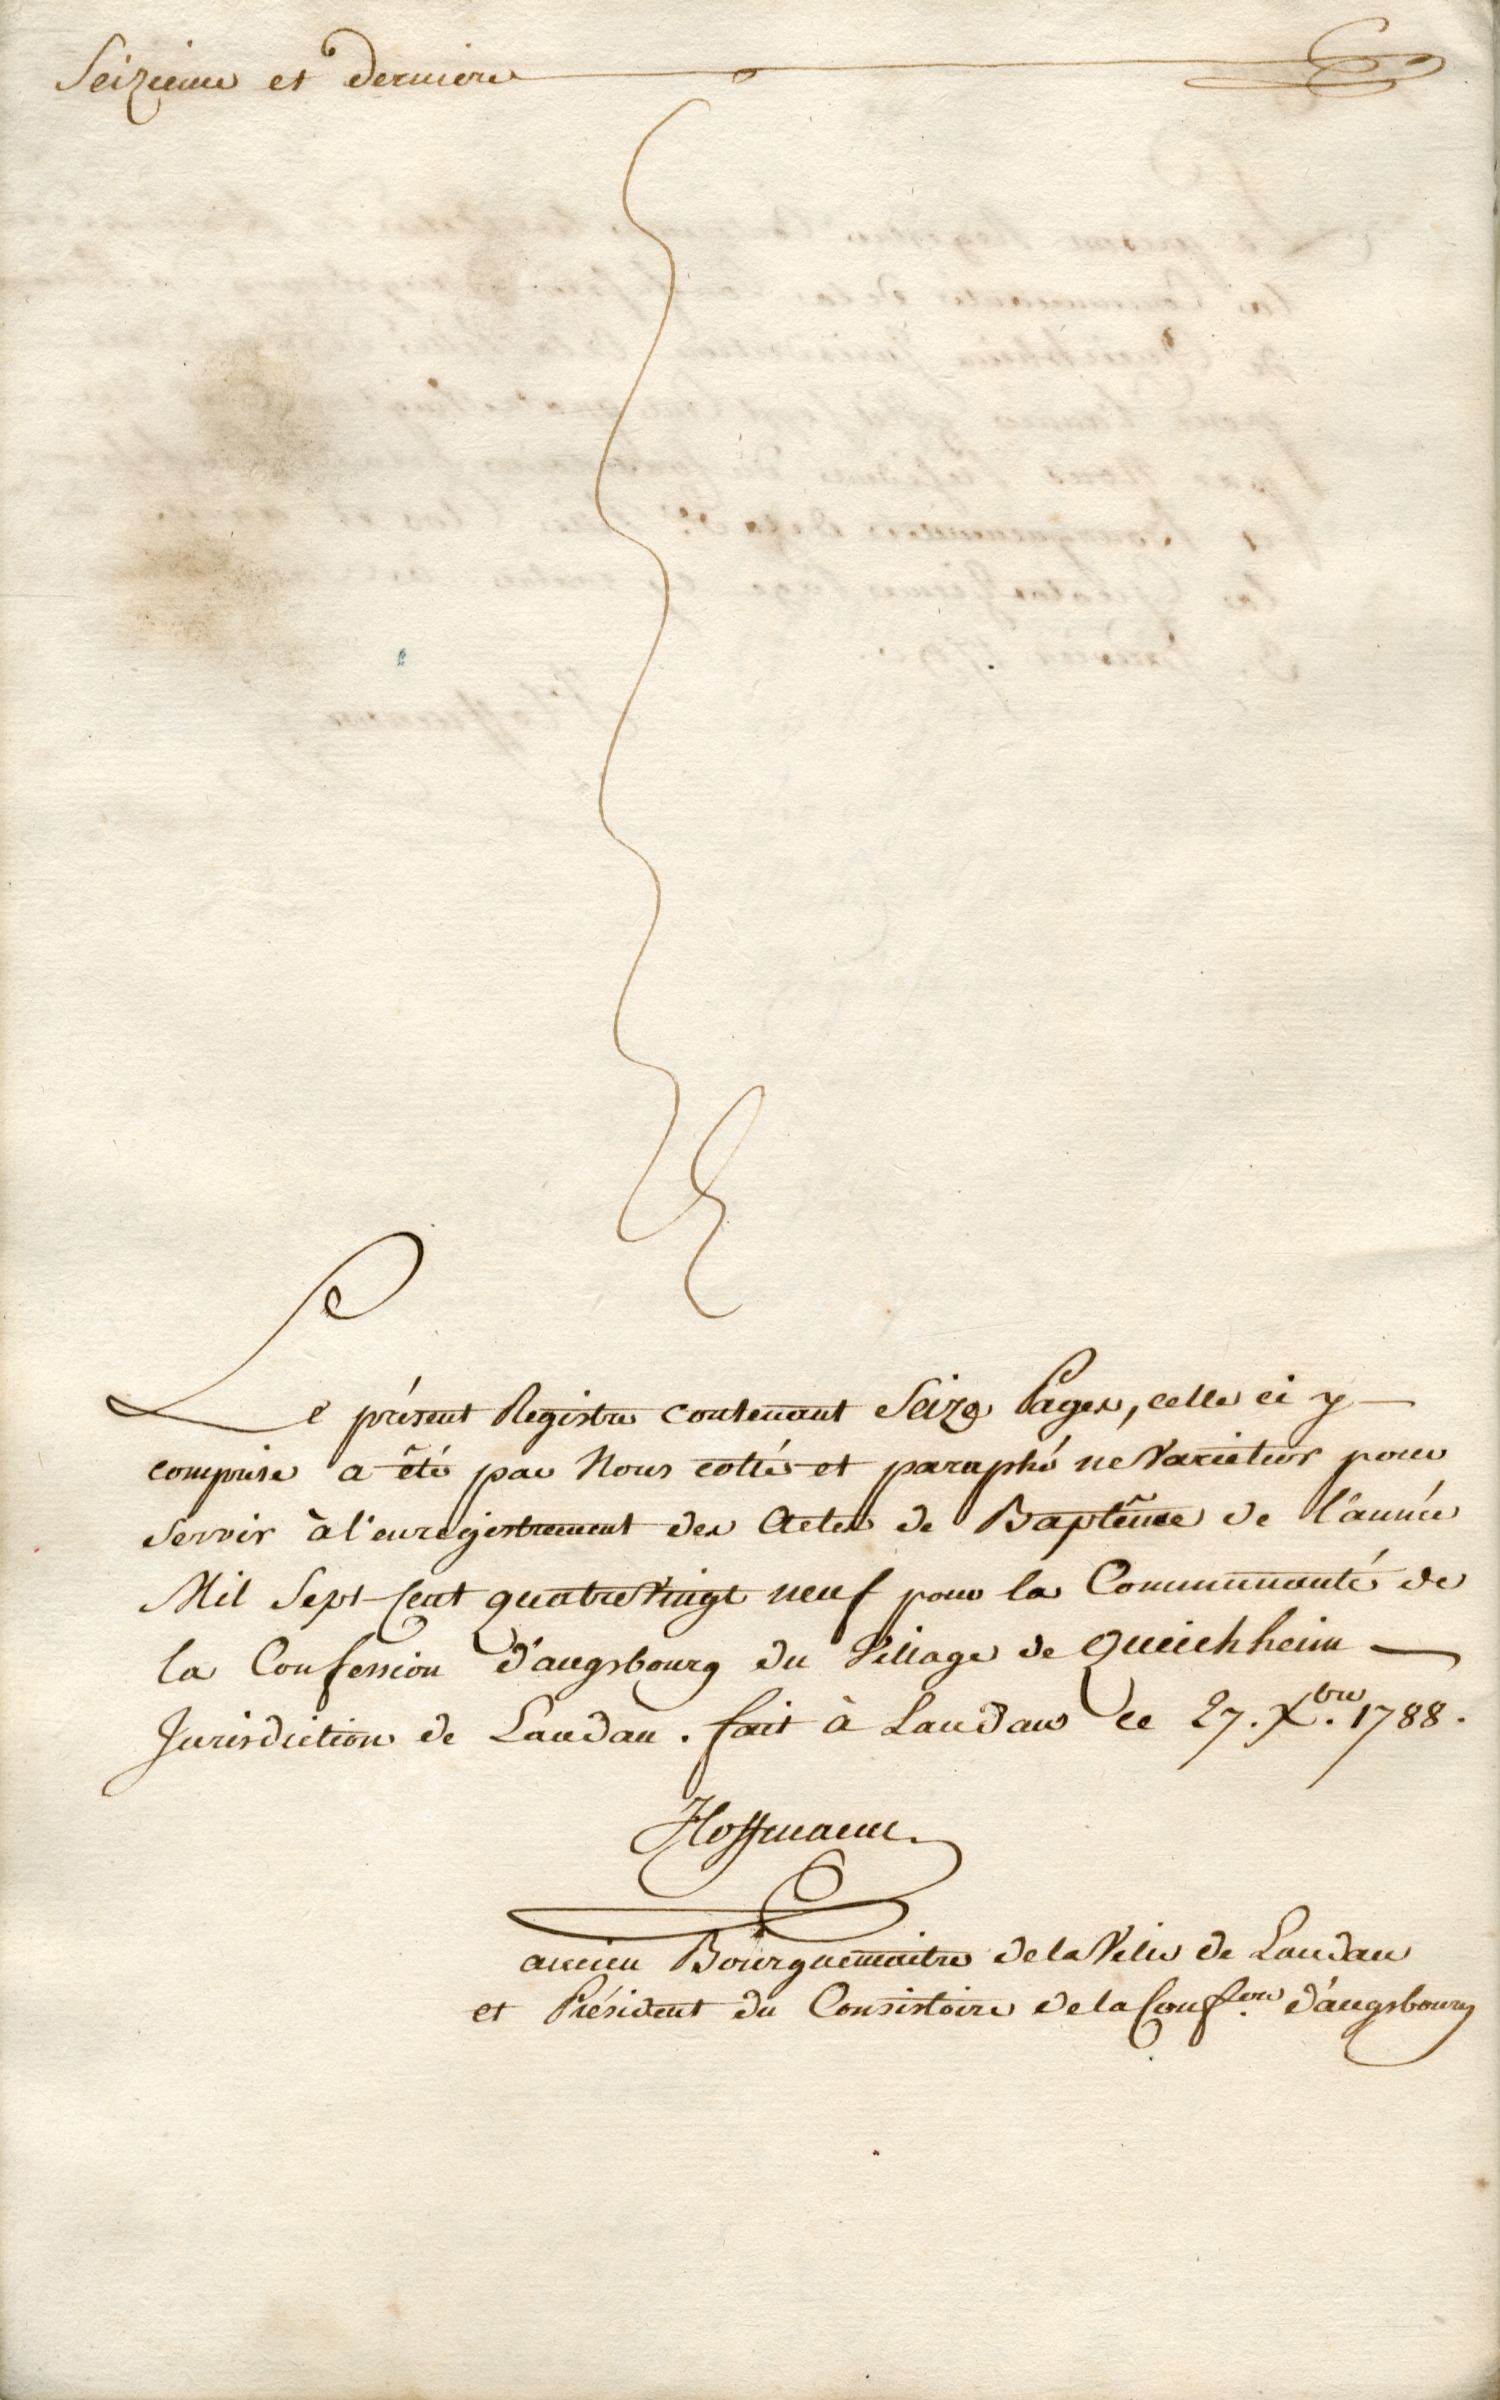 Seizieme et derniere
Le présent Registre contenant Seize Pages, celle ci y
comprise a êté par Nous cotté et paraphé ne Varietur pour
servir à l'enregistrement des Actes de Baptême de l'année
Mil Sept Cent quatre Vingt neuf pour la Communauté de
la Confession d'augsbourg du Village de Queichheim
Jurisdiction de Landau. fait à Landau ce 27. Xbre. 1788.
Hoffmann.
ancien Bourguemaitre de la Ville de Landau
et Président du Consistoire de la Confon. d'augsbourg